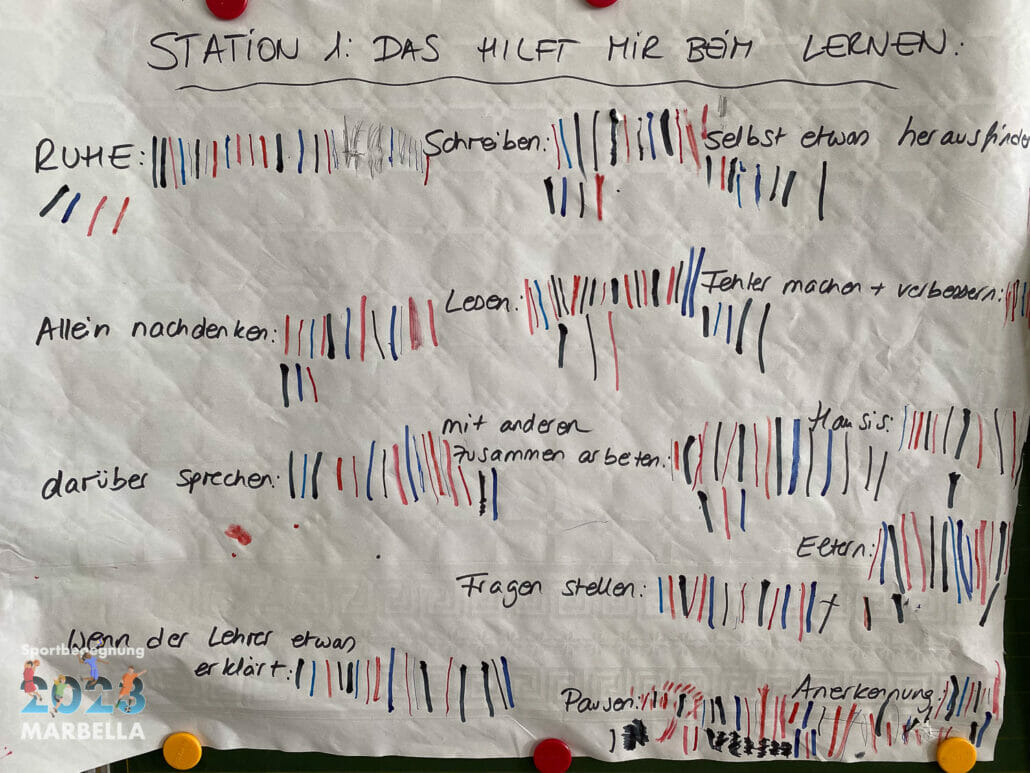 STATION 1: DAS HILFT MIR BEIM LERNEN:
RUHE:
Schreiben:
Selbst etwas herausfinden
Allein nachdenken:
Lesen:
Fehler machen + verbessern:
darüber sprechen:
mit anderen
zusammen arbeten:
Hausis:
Eltern:
Fragen stellen:
Wenn der Lehrer etwas
erklärt:
Pausen:
Anerkennung:
Sportbegegnung
2023
MARBELLA